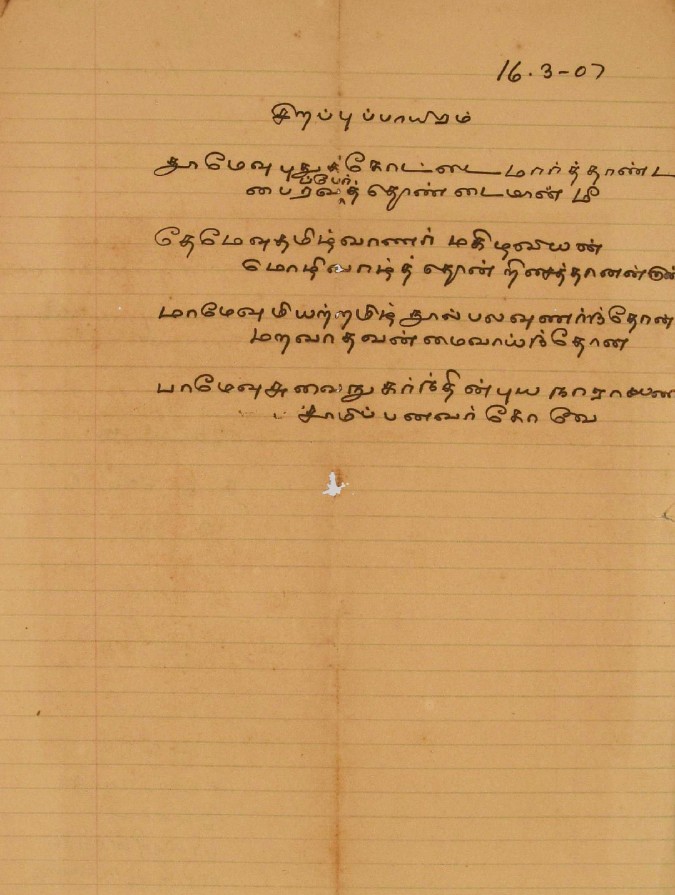 16.3-07
சிறப்புப்பாயிரம்
தாமேவு புதுக்கோட்டை மார்த்தாண்ட
ப்பேர்
பைரவத் தொண்டைமான் மீ
தேமேவுதமிழ்வாணர் மகிழவியன்
மொழிவாழ்த் தொன் றிசைத்தானன்
மாமேவு மியற்றமிழ் நூல் பலவுணர்ந்தோன்
மறவாதவன்மைவாய்ந்தோன
பாமேவுசுவைநுகர்ந்தின்புய நாராயண
சாமிப் பனவர் கோ வே